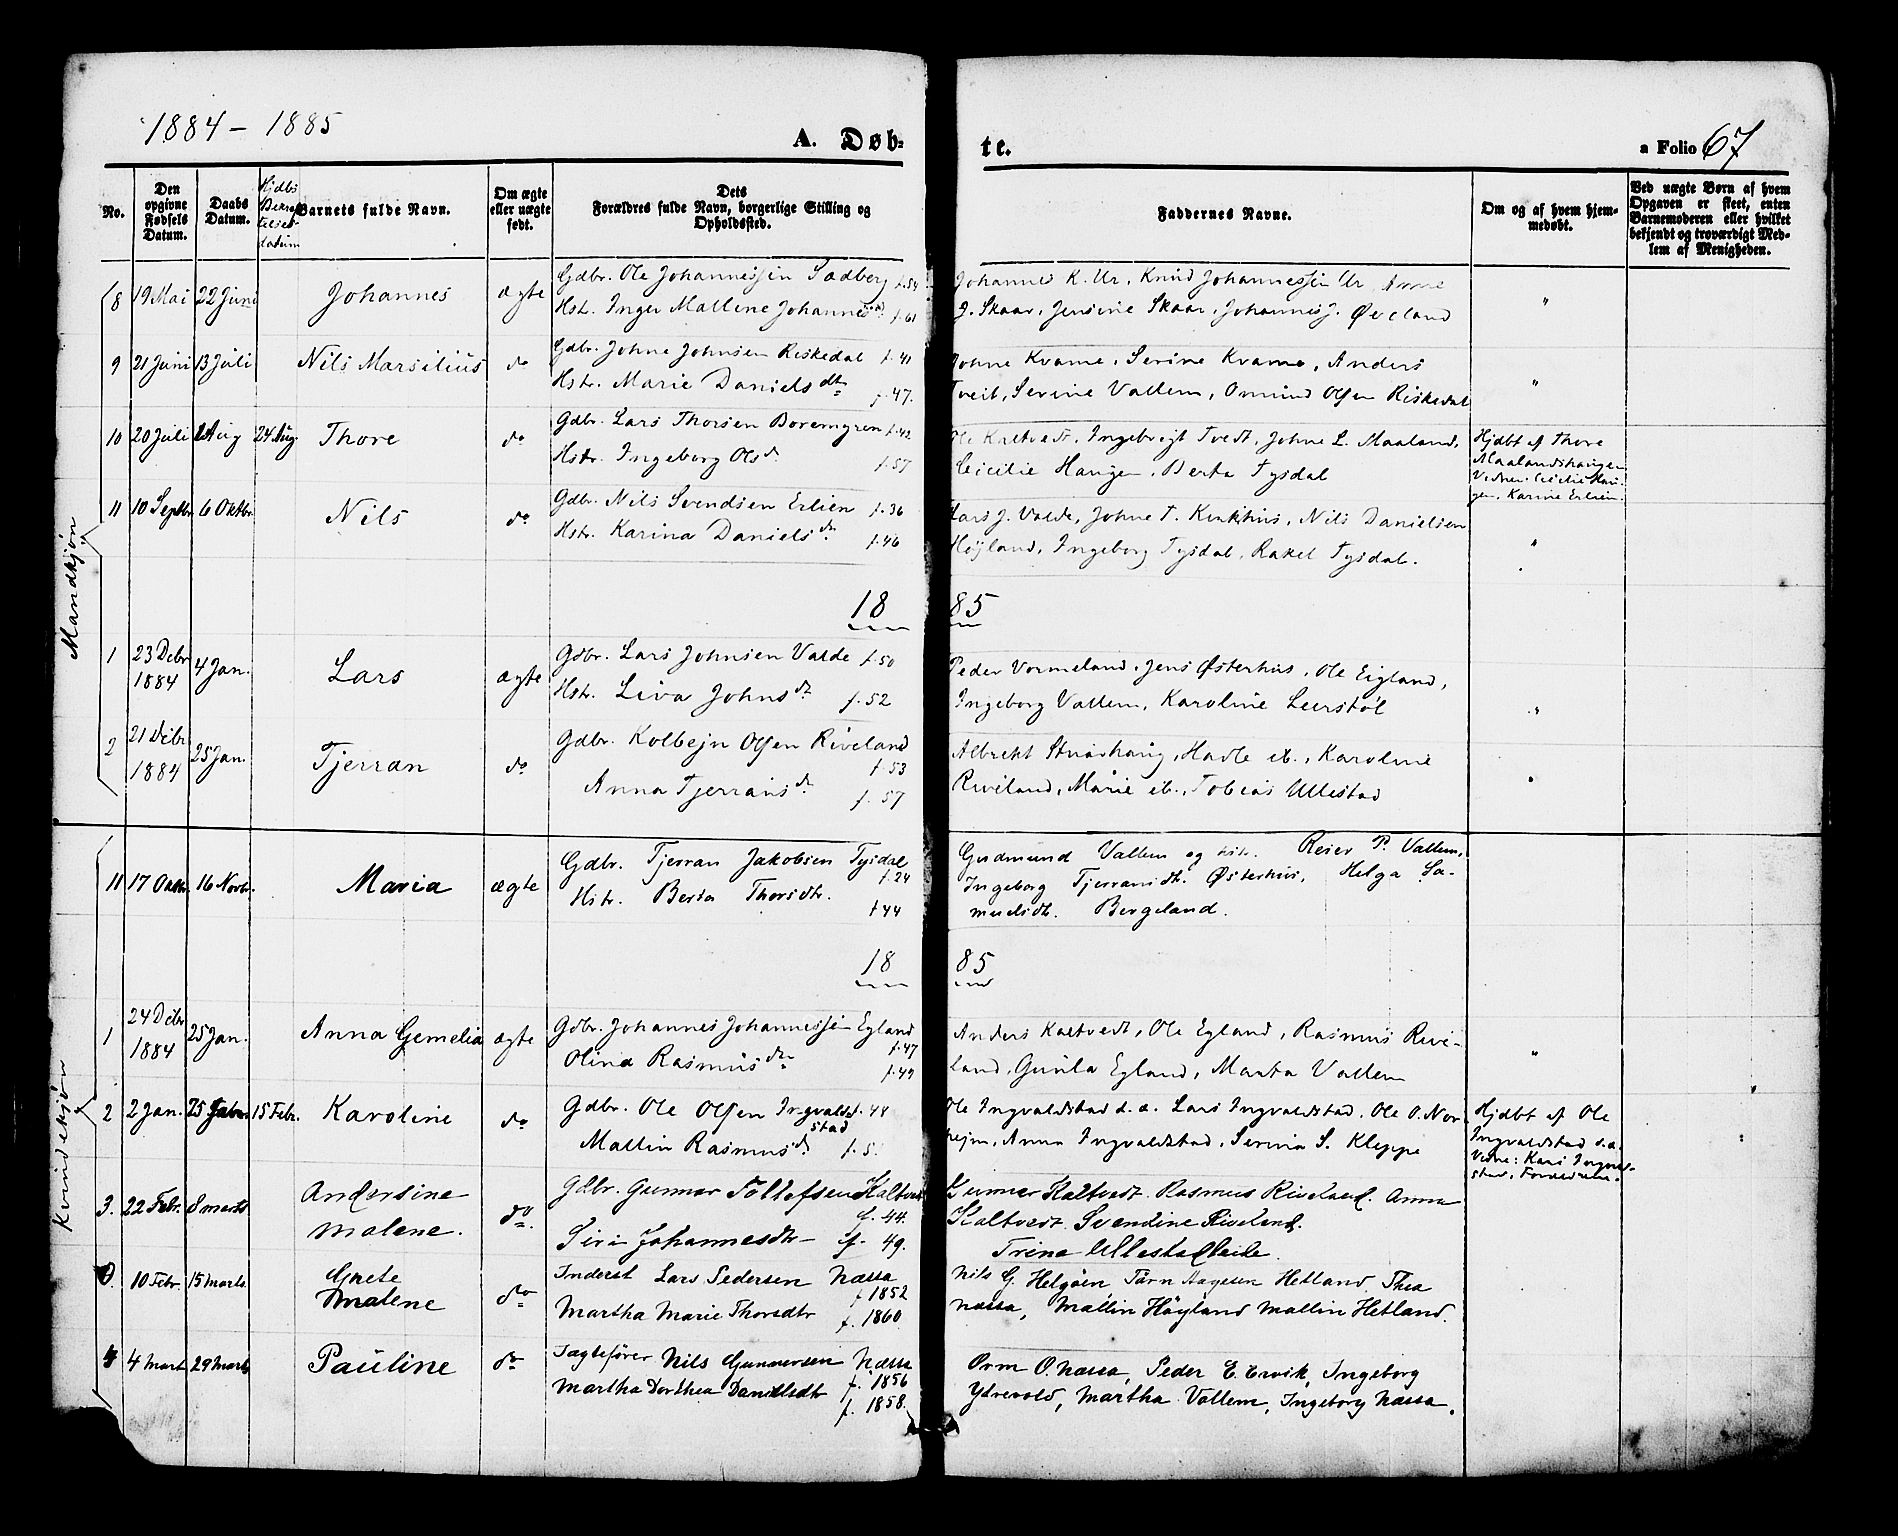 1884 – 1885
A. Døb-
te.
a Folio 67
No.
Den opgivne Fødsels Datum.
Daabs Datum.
Hjdbs Bekræftelsesdatum
Barnets fulde Navn.
Om ægte eller uægte født.
Dets Forældres fulde Navn, borgerlige Stilling og Opholdssted.
Faddernes Navne.
Om og af hvem hjemmedøbt.
Ved uægte Børn af hvem Opgaven er skeet, enten Barnemoderen eller hvilket bekjendt og troværdigt Medlem af Menigheden.
Mandkjøn
8 19 Mai 22 Juni Johannes ægte Gdbr. Ole Johannessen Sædberg f. 54 Johannes K. Ur, Knud Johannessen Ur, Anne "
Hst. Inger Malline Johannesd. f. 61 J. Skaar, Jensine Skaar, Johannes J. Øveland
9 21 Juni 13 Juli Nils Marsilius do Gdbr. Johne Johnsen Riskedal f. 41 Johne Kvame, Serine Kvame, Anders "
Hstr. Marie Danielsdtr f. 47. Tveit, Serine Vallem, Omund Olsen Riskedal
10 20 Juli Aug 24 Aug. Thore do Gdbr. Lars Thorsen Boremgren f. 42 Ole Kaltvedt, Ingebrigt Tvedt, Johne L. Maaland, Hjdbt af Thore
Hstr. Ingeborg Olsd. f. 57 Cicilie Haugen, Berta Tysdal Maalandshaugen
Vidner: Cicilie Hau-
gen, Karine Erlien.
11 10 Septbr 6 Oktbr. Nils do Gdbr. Nils Svendsen Erlien f. 36 Lars J. Valde, Johne T. Kirkhus, Nils Danielsen "
Hst. Karina Danielsd. f. 46 Høyland, Ingeborg Tysdal, Rakel Tysdal.
18 85
1 23 Debr 1884 4 Jan. Lars ægte Gdbr. Lars Johnsen Valde f. 50 Peder Vormeland, Jens Østerhus, Ole Eigland, "
Hst. Liva Johnsd. f. 52 Ingeborg Vallem, Karoline Leirstøl
2 21 Debr 1884 25 Jan. Tjerran do Gdbr. Kolbejn Olsen Riveland f. 53 Albrekt Hadle ib., Karoline "
Anna Tjerransd. f. 57 Riveland, Marie ib., Tobias Ullestad
Kvindekjøn
11 17 Oktbr. 16 Novbr. Maria ægte Gdbr. Tjerran Jakobsen Tysdal f. 24 Gudmund Vallem og Reier P. Vallem,
Hstr. Berta Thorsdtr. f 44 Ingeborg Tjerransdt. Østerhus, Helga Sa-
muelsdt. Bergeland.
18 85
1 24 Debr 1884 25 Jan. Anna Gemelia ægte Gdbr. Johannes Johannessen Egland f. 47 Anders Kaltvedt, Ole Egland, Rasmus Rive- "
Olina Rasmusdtr f. 49 land, Gunla Egland, Marta Vallem
2 2 Jan. 25 15 Febr. Karoline do Gdbr. Ole Olsen Ingvaldstad f. 48 Ole Ingvaldstad d. æ. Lars Ingvaldstad, Ole O. Nor- Hjdbt af Ole
Mallin Rasmusd. f. 5 hejm, Anna Ingvaldstad, Serina S. Kleppe Ingvaldstad d. æ.
Vidne: Kari Ingvald-
stad, Forældrene.
3. 22 Febr. 8 marts Andersine Malene. do. Gdbr. Gunnar Tollefsen Kaltvedt f. 44. Gunnar Kaltvedt. Rasmus Riveland. Anna
Siri Johannesdtr – f. 49. Kaltvedt. Svendine Riveland.
Trine
10 Febr. 15 marts Grete Malene do Inderst Lars Pedersen Næssa f 1852 Nils G. Helgøen Tårn Aagesen Hetland. Thea
Martha Marie Thorsdtr f. 1860. Næssa, Mallin Høyland Mallin Hetland.
4 mart. 29 marts Pauline do Jægtefører Nils Gunnersen Næssa f. 1856 Orm O. Næssa, Peder E. Ervik, Ingeborg
Martha Dorthea Danielsdtr f. 1858. Ydrevold, Martha Vallem, Ingeborg Næssa.